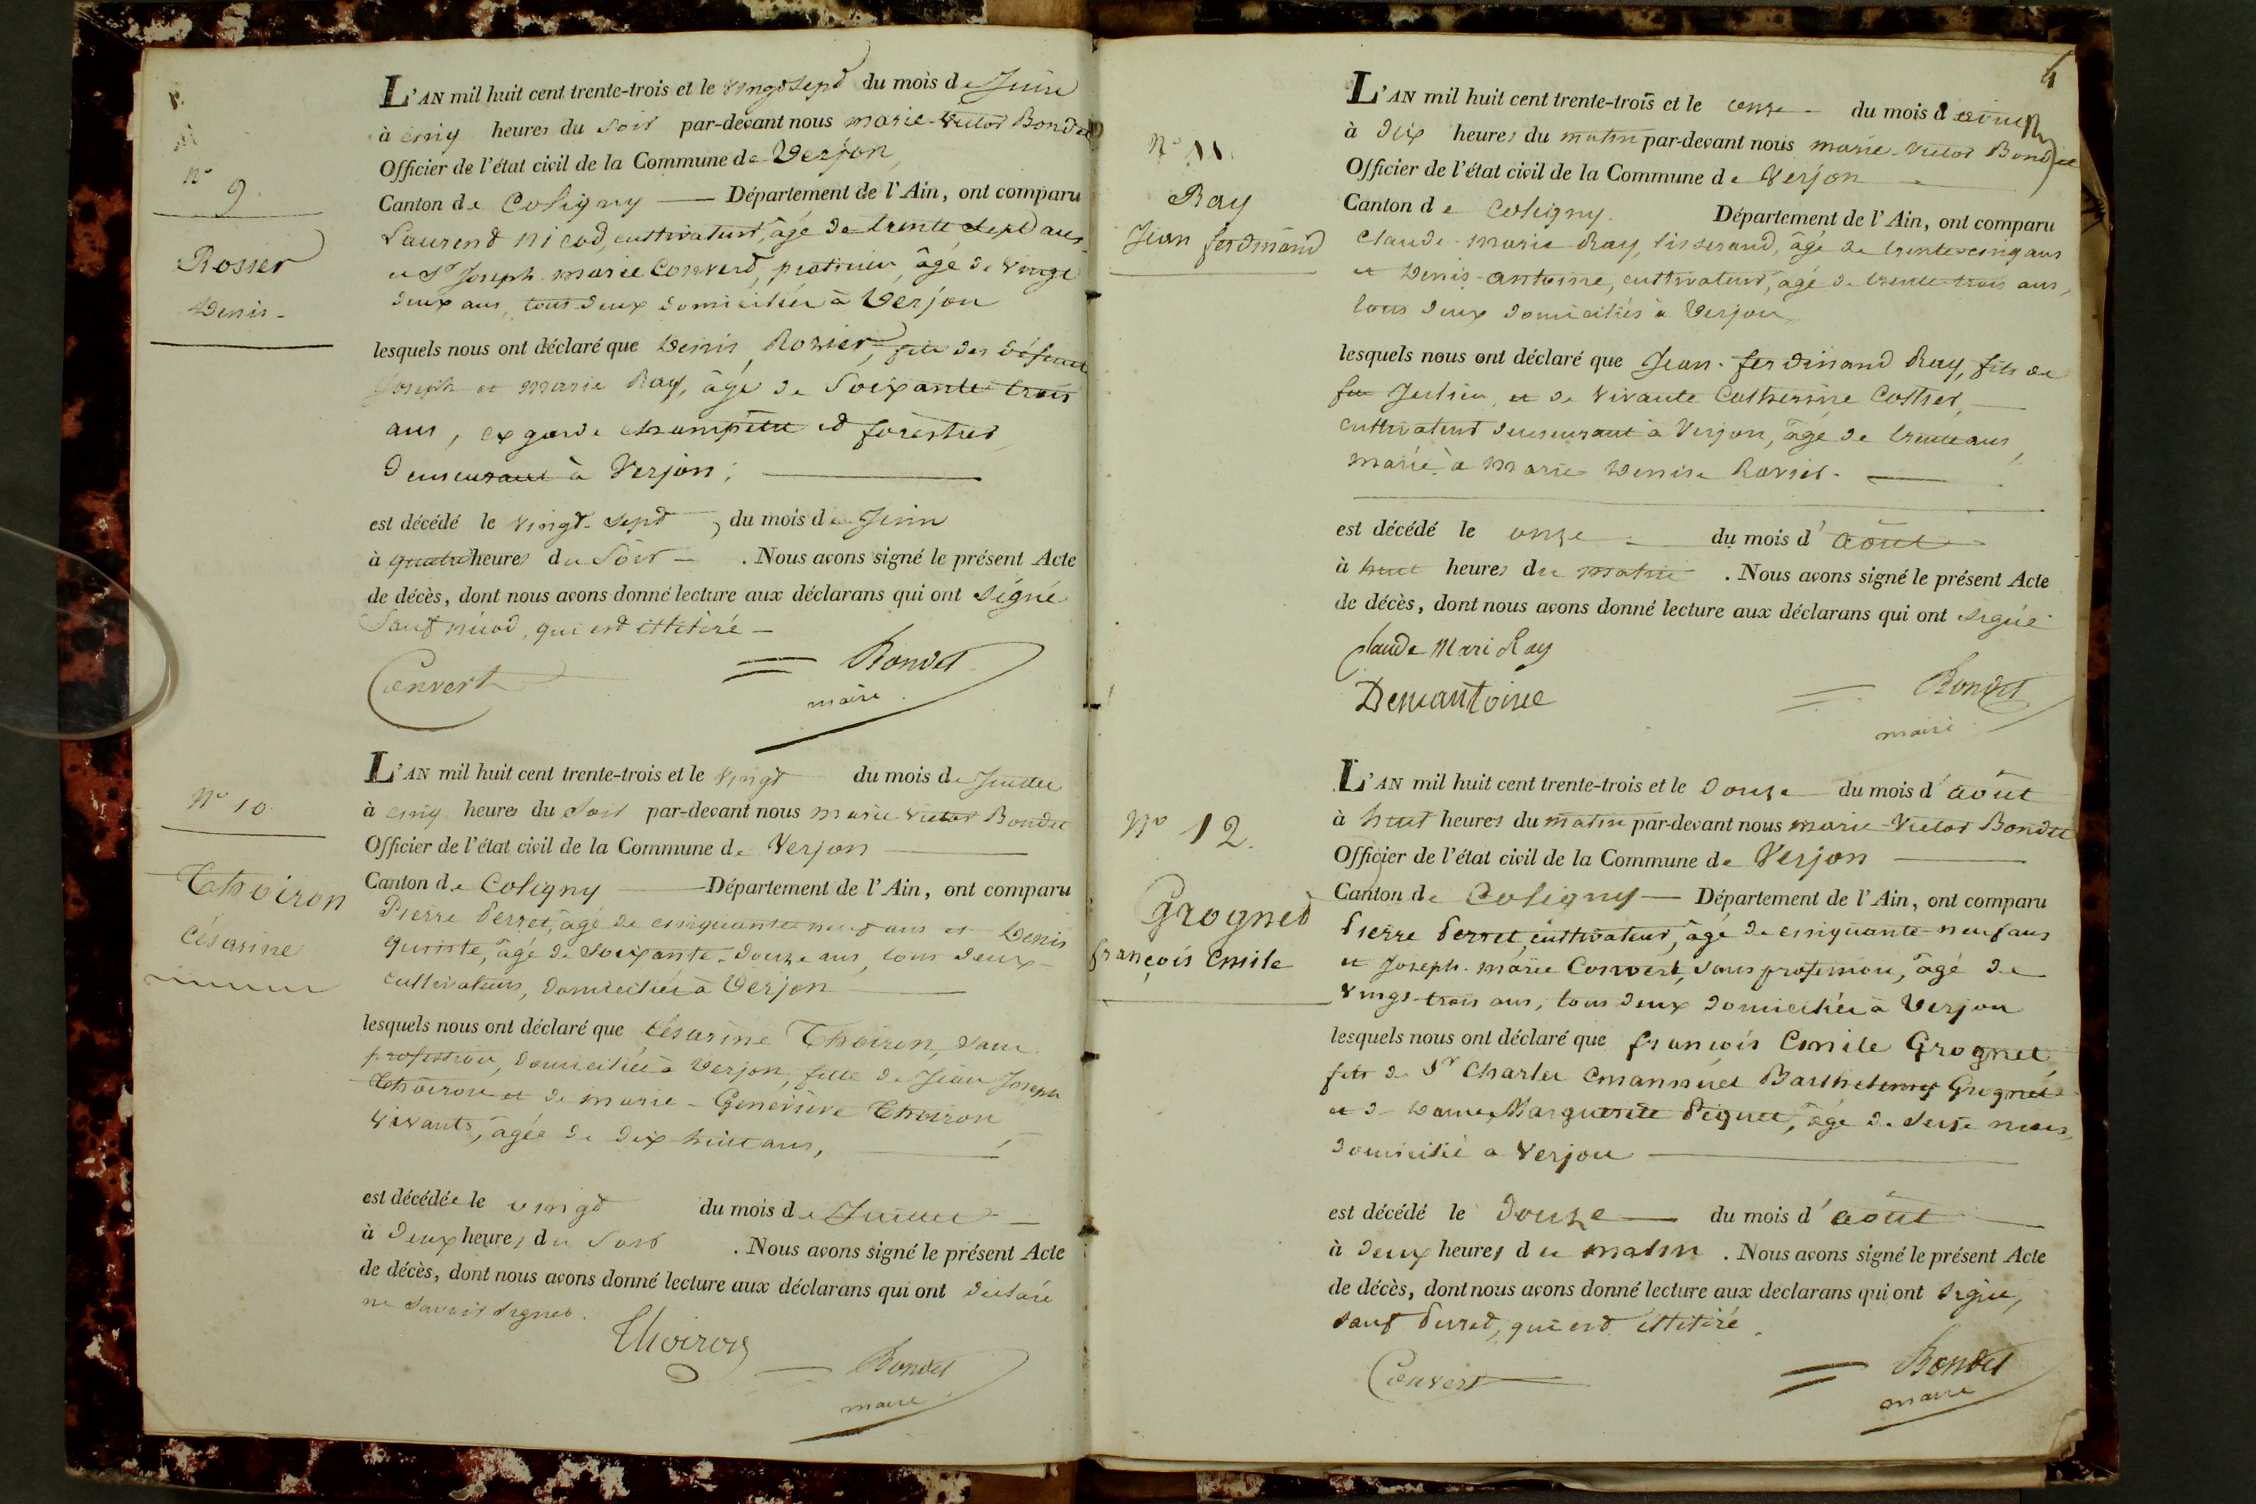 N° 9.
Rosier
Denis.
L'AN mil huit cent trente-trois et le vingt sept du mois de Juin
à cinq heures du soir par-devant nous marie-Victor Bondet
Officier de l'état civil de la Commune de Verjon,
Canton de Coligny — Département de l'Ain, ont comparu
Laurend Nicod, cultivateur, âgé de trente sept ans
et Sr Joseph marie Converd, praticien, âgé de vingt
deux ans, tous deux domiciliés à Verjon
lesquels nous ont déclaré que Denis Rosier, fils des défunts
Joseph et marie Ray, âgé de Soixante trois
ans, ex garde champêtre et forestier
demeurant à Verjon;
est décédé le vingt-sept, du mois de Juin
à quatre heures du Soir — . Nous avons signé le présent Acte
de décès, dont nous avons donné lecture aux déclarans qui ont signé
Sauf nicod, qui est illitéré —
Convert
Bondet
maire
N° 10
Thoiron
Césarine
L'AN mil huit cent trente-trois et le vingt du mois de Juillet
à cinq heures du Soir par-devant nous marie-Victor Bondet
Officier de l'état civil de la Commune de Verjon
Canton de Coligny — Département de l'Ain, ont comparu
Pierre Perret, âgé de cinquante neuf ans et Denis
âgé de Soixante-douze ans, tous deux
cultivateurs, domiciliés à Verjon
lesquels nous ont déclaré que Césarine Thoiron, sans
profession, domiciliée à Verjon, fille de Jean Joseph
Thoiron et de marie-Geneviève Thoiron,
vivants, âgée de dix-huit ans,
est décédée le vingt du mois de Juillet
à deux heures du Soir . Nous avons signé le présent Acte
de décès, dont nous avons donné lecture aux déclarans qui ont déclaré
ne savoir signer.
Thoiron
Bondet
maire
4
N° 11.
Ray
Jean ferdinand
L'AN mil huit cent trente-trois et le onze du mois d'août
à dix heures du matin par-devant nous marie-Victor Bondet
Officier de l'état civil de la Commune de Verjon
Canton de Coligny. Département de l'Ain, ont comparu
Claude-marie Ray, tisserand, âgé de trente-cinq ans
et Denis-antoine, cultivateur, âgé de trente-trois ans,
tous deux domiciliés à Verjon
lesquels nous ont déclaré que Jean-ferdinand Ray, fils de
feu Julien, et de vivante Catherine Costier,
cultivateur demeurant à Verjon, âgé de trente ans,
marié à Marie Denise
est décédé le onze du mois d'août
à huit heures du matin . Nous avons signé le présent Acte
de décès, dont nous avons donné lecture aux déclarans qui ont signé
Claude Mari Ray
Deniantoine
Bondet
maire
N° 12.
Grognet
françois Emile
L'AN mil huit cent trente-trois et le Douze du mois d'août
à huit heures du matin par-devant nous marie-Victor Bondet
Officier de l'état civil de la Commune de Verjon
Canton de Coligny — Département de l'Ain, ont comparu
Pierre Perret, cultivateur, âgé de cinquante-neuf ans
et Joseph-marie Convert, sans profession, âgé de
vingt-trois ans, tous deux domiciliés à Verjon
lesquels nous ont déclaré que françois Emile Grognet,
fils de Sr Charles Emannuel Barthelemy Grognet
et de Dame Marguerite Piquet, âgé de seize mois,
domicilié à Verjon
est décédé le Douze du mois d'août
à deux heures du matin . Nous avons signé le présent Acte
de décès, dont nous avons donné lecture aux declarans qui ont signé,
sauf Perret, qui est illitéré.
Convert
Bondet
maire